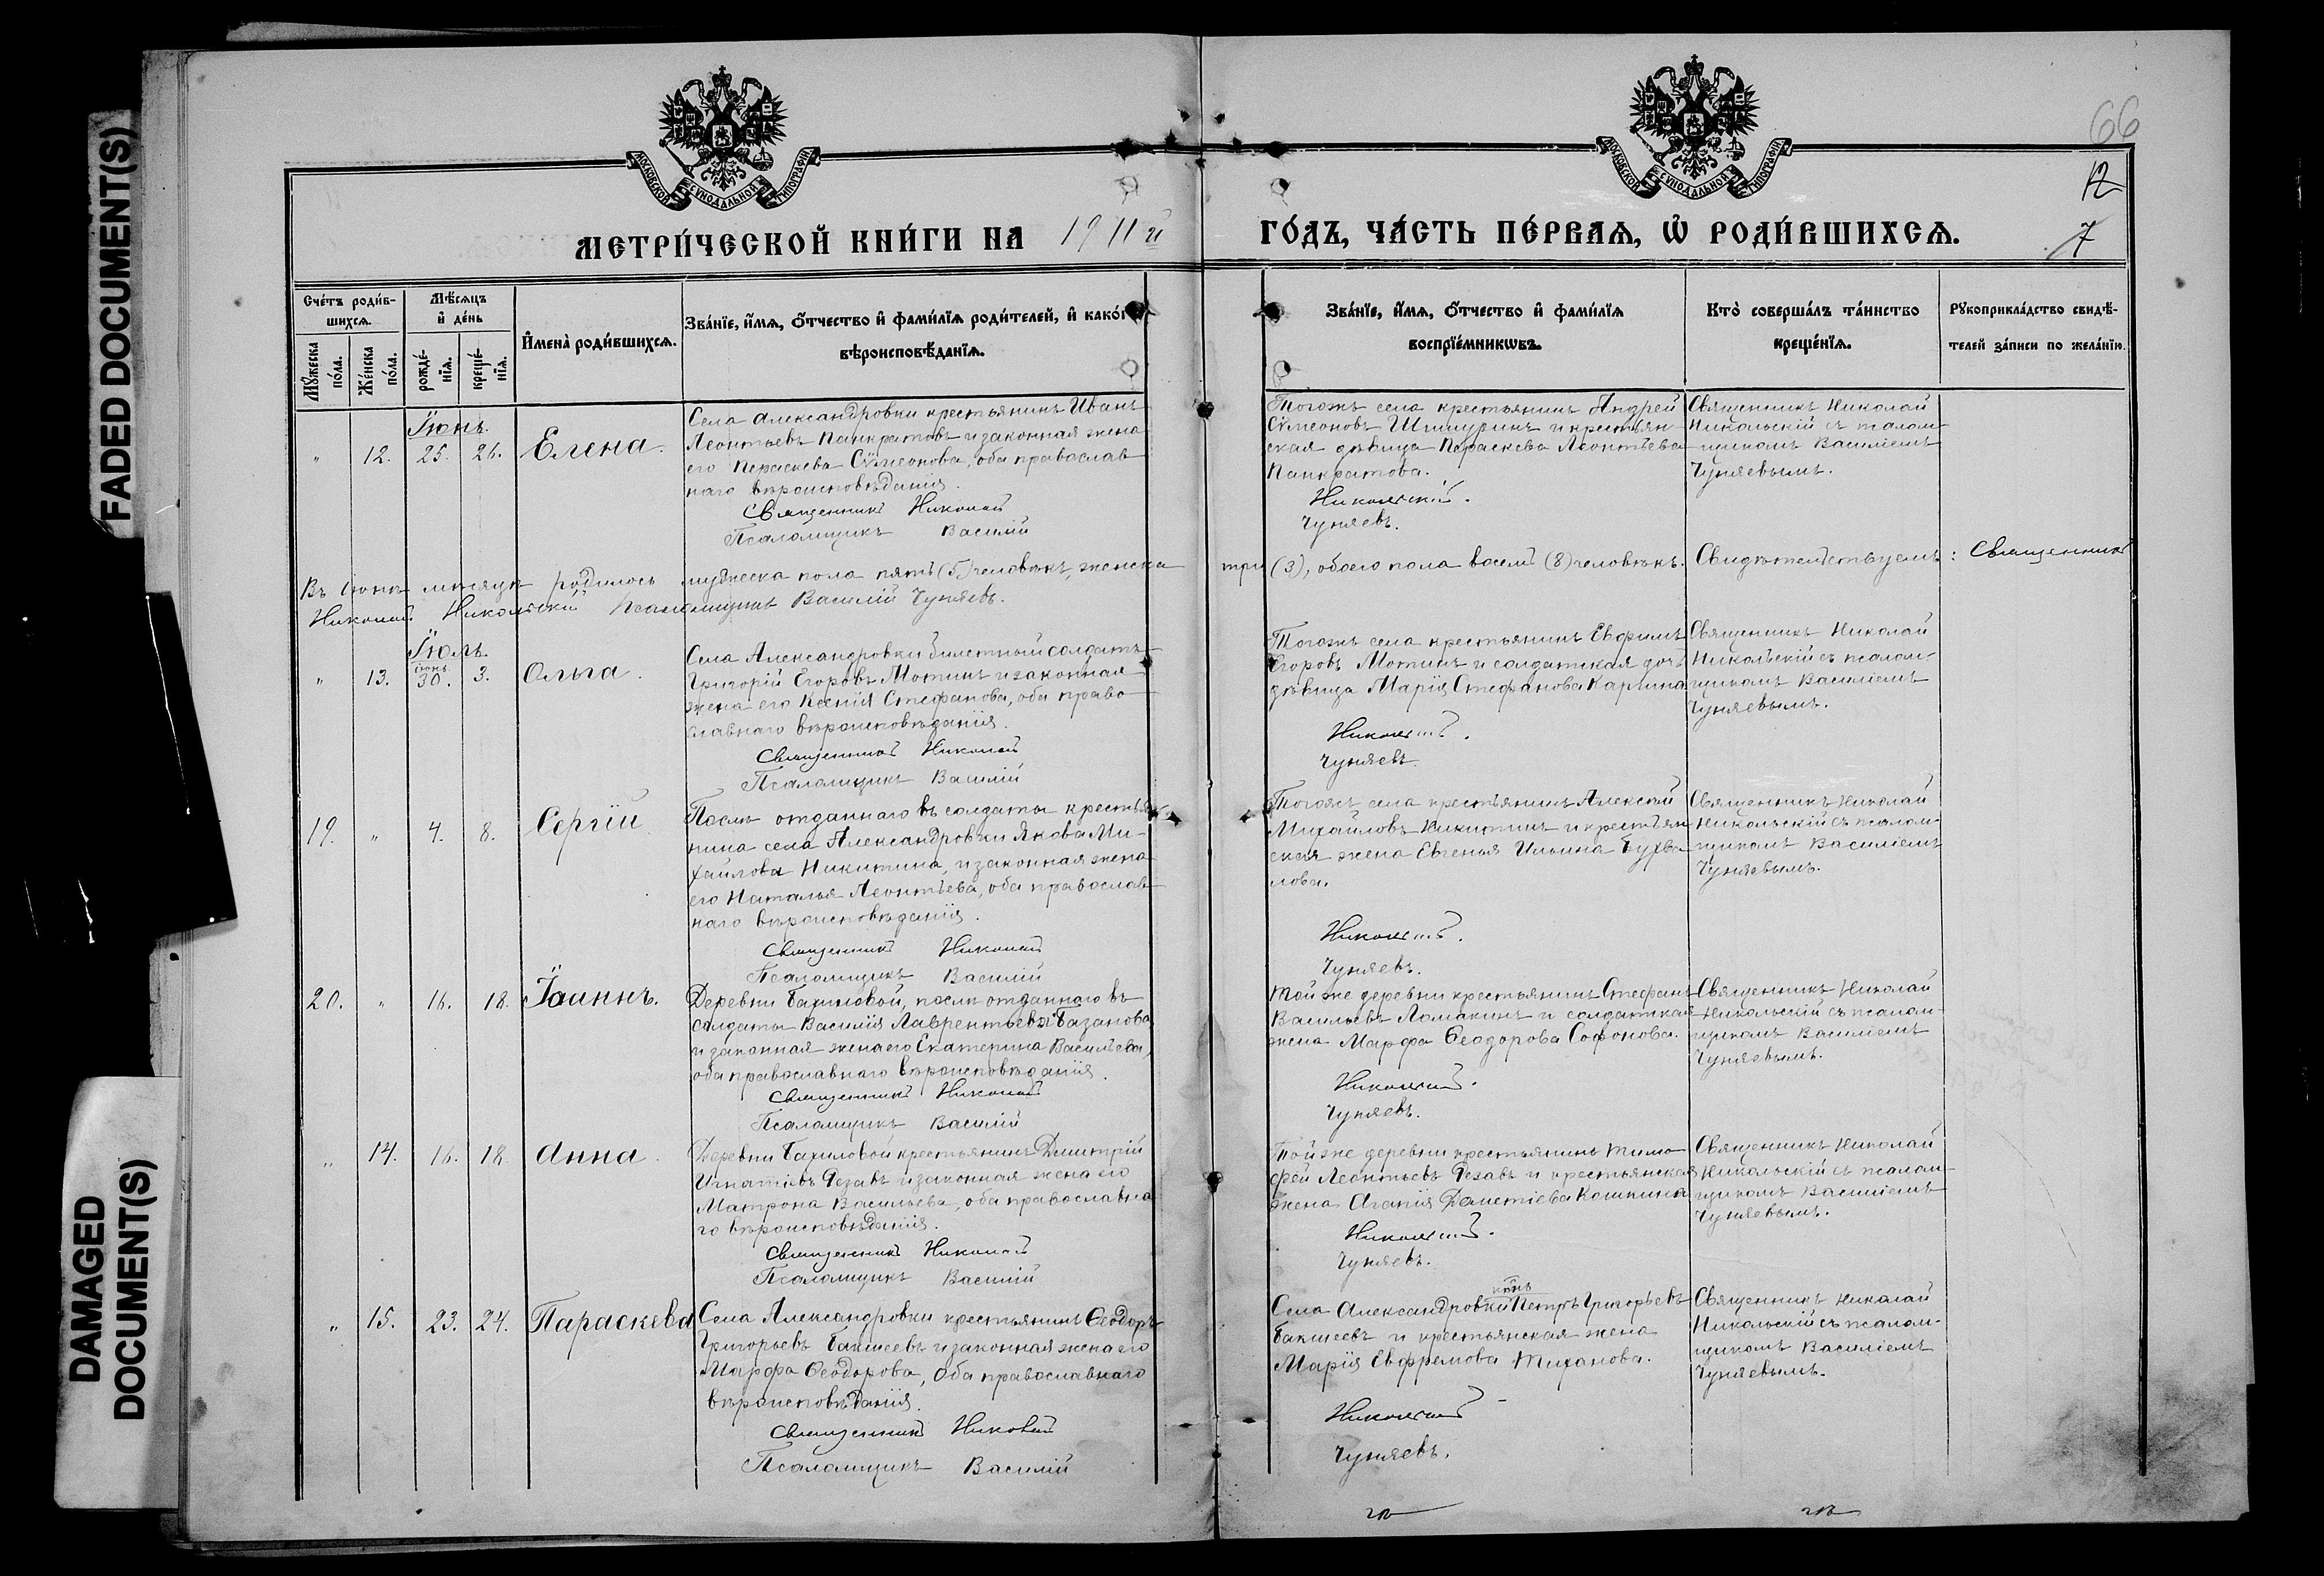 FADED DOCUMENT(S)
DAMAGED
DOCUMENT(S)
МОСКОВСКОЙ СѴНОДАЛЬНОЙ ТИПОГРАФІИ
МОСКОВСКОЙ СѴНОДАЛЬНОЙ ТИПОГРАФІИ
66
12
7
МЕТРИ́ЧЕСКОЙ КНИ́ГИ НА 1911й ГО́ДЪ, ЧА́СТЬ ПЕ́РВАѦ, Ѡ҆ РОДИ́ВШИХСѦ.
Сче́тъ роди́в-
шихсѧ.
Мꙋ́жеска
по́ла.
Же́нска
по́ла.
Мѣ́сѧцъ
и҆ де́нь
рожде́-
нїѧ.
креще́-
нїѧ.
И҆мена̀ роди́вшихсѧ.
Зва́нїе, и҆́мѧ, ѻ҆́тчество и҆ фами́лїѧ роди́телей, и҆ како́г
вѣроисповѣ́данїѧ.
Зва́нїе, и҆́мѧ, ѻ҆́тчество и҆ фами́лїѧ
воспрїе́мникѡвъ.
Кто̀ соверша́лъ та́инство
креще́нїѧ.
Рꙋкоприкла́дство свидѣ́-
телей за́писи по жела́нїю.
Іюнь.
" 12. 25. 26. Елена.
Села Александровки крестьянинъ Иванъ
Леонтьевъ Панкратовъ и законная жена
его Параскева Сѵмеонова, оба православ
наго вѣроисповѣданія.
Священникъ Николай
Псаломщикъ Василій
Тогожъ села крестьянинъ Андрей
Сѵмеоновъ Шишуринъ и крестьян-
ская дѣвица Параскева Леонтьева
Панкратова.
Никольскій.
Чуняевъ.
Священникъ Николай
Никольскій съ псалом-
щикомъ Василіемъ
Чуняевымъ.
Въ Іюнѣ мѣсяцѣ родилось мужеска пола пять (5) человѣкъ, женска три (3), обоего пола восемь (8) человѣкъ. Свидѣтельствуемъ: Священникъ
Николай Никольскій Псаломщикъ Василій Чуняевъ.
Іюль.
" 13. іюнь 30. 3. Ольга.
Села Александровки билетный солдатъ
Григорій Егоровъ Мотинъ и законная
жена его Ксенія Стефанова, оба право
славнаго вѣроисповѣданія.
Священникъ Николай
Псаломщикъ Василій
Тогожъ села крестьянинъ Евфимъ
Егоровъ Мотинъ и солдатская дочь
дѣвица Марія Стефанова Карпина
Никольскій.
Чуняевъ.
Священникъ Николай
Никольскій съ псалом-
щикомъ Василіемъ
Чуняевымъ.
19. " 4. 8. Сергій
Послѣ отданнаго въ солдаты крестья
нина села Александровки Якова Ми-
хайлова Никитина, и законная жена
его Наталья Леонтьева, оба православ
наго вѣроисповѣданія.
Священникъ Николай
Псаломщикъ Василій
Тогожъ села крестьянинъ Алексѣй
Михайловъ Никитинъ и крестьян
ская жена Евгенья Ильина Бухва
лова.
Никольскій.
Чуняевъ.
Священникъ Николай
Никольскій съ псалом-
щикомъ Василіемъ
Чуняевымъ.
20. " 16. 18. Іоаннъ.
Деревни Бахиловой, послѣ отданнаго въ
солдаты Василія Лаврентьева Базанова
и законная жена его Екатерина Васильева,
оба православнаго вѣроисповѣданія.
Священникъ Николай
Псаломщикъ Василій
Той же деревни крестьянинъ Стефанъ
Васильевъ Ломакинъ и солдатская
жена Марфа Ѳеодорова Софонова.
Никольскій.
Чуняевъ.
Священникъ Николай
Никольскій съ псалом-
щикомъ Василіемъ
Чуняевымъ.
" 14. 16. 18. Анна.
Деревни Бахиловой крестьянинъ Димитрій
Игнатіевъ Резавъ и законная жена его
Матрона Васильева, оба православна
го вѣроисповѣданія.
Священникъ Николай
Псаломщикъ Василій
Той же деревни крестьянинъ Тимо
фей Леонтьевъ Резавъ и крестьянская
жена Агапія Дометіева Кошкина
Никольскій.
Чуняевъ.
Священникъ Николай
Никольскій съ псалом-
щикомъ Василіемъ
Чуняевымъ.
" 15. 23. 24. Параскева
Села Александровки крестьянинъ Ѳеодоръ
Григорьевъ Бакшеевъ и законная жена его
Марфа Ѳеодорова, оба православнаго
вѣроисповѣданія.
Священникъ Николай
Псаломщикъ Василій
Села Александровки кр̃нъ Петръ Григорьевъ
Бакшеевъ и крестьянская жена
Марія Евфремова Тиханова.
Никольскій
Чуняевъ.
Священникъ Николай
Никольскій съ псалом-
щикомъ Василіемъ
Чуняевымъ.